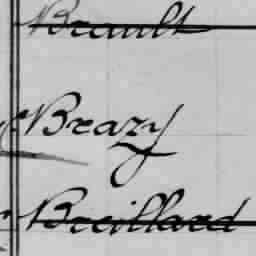 Breault
Brazy
Breillard